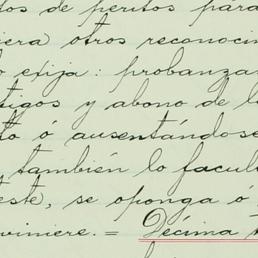 dos de peritos para
iera otros reconoci
o exija: probanza
tigos y abono de l
tó ó ausentándose
también lo facul
este, se oponga ó
viniere. = Décima